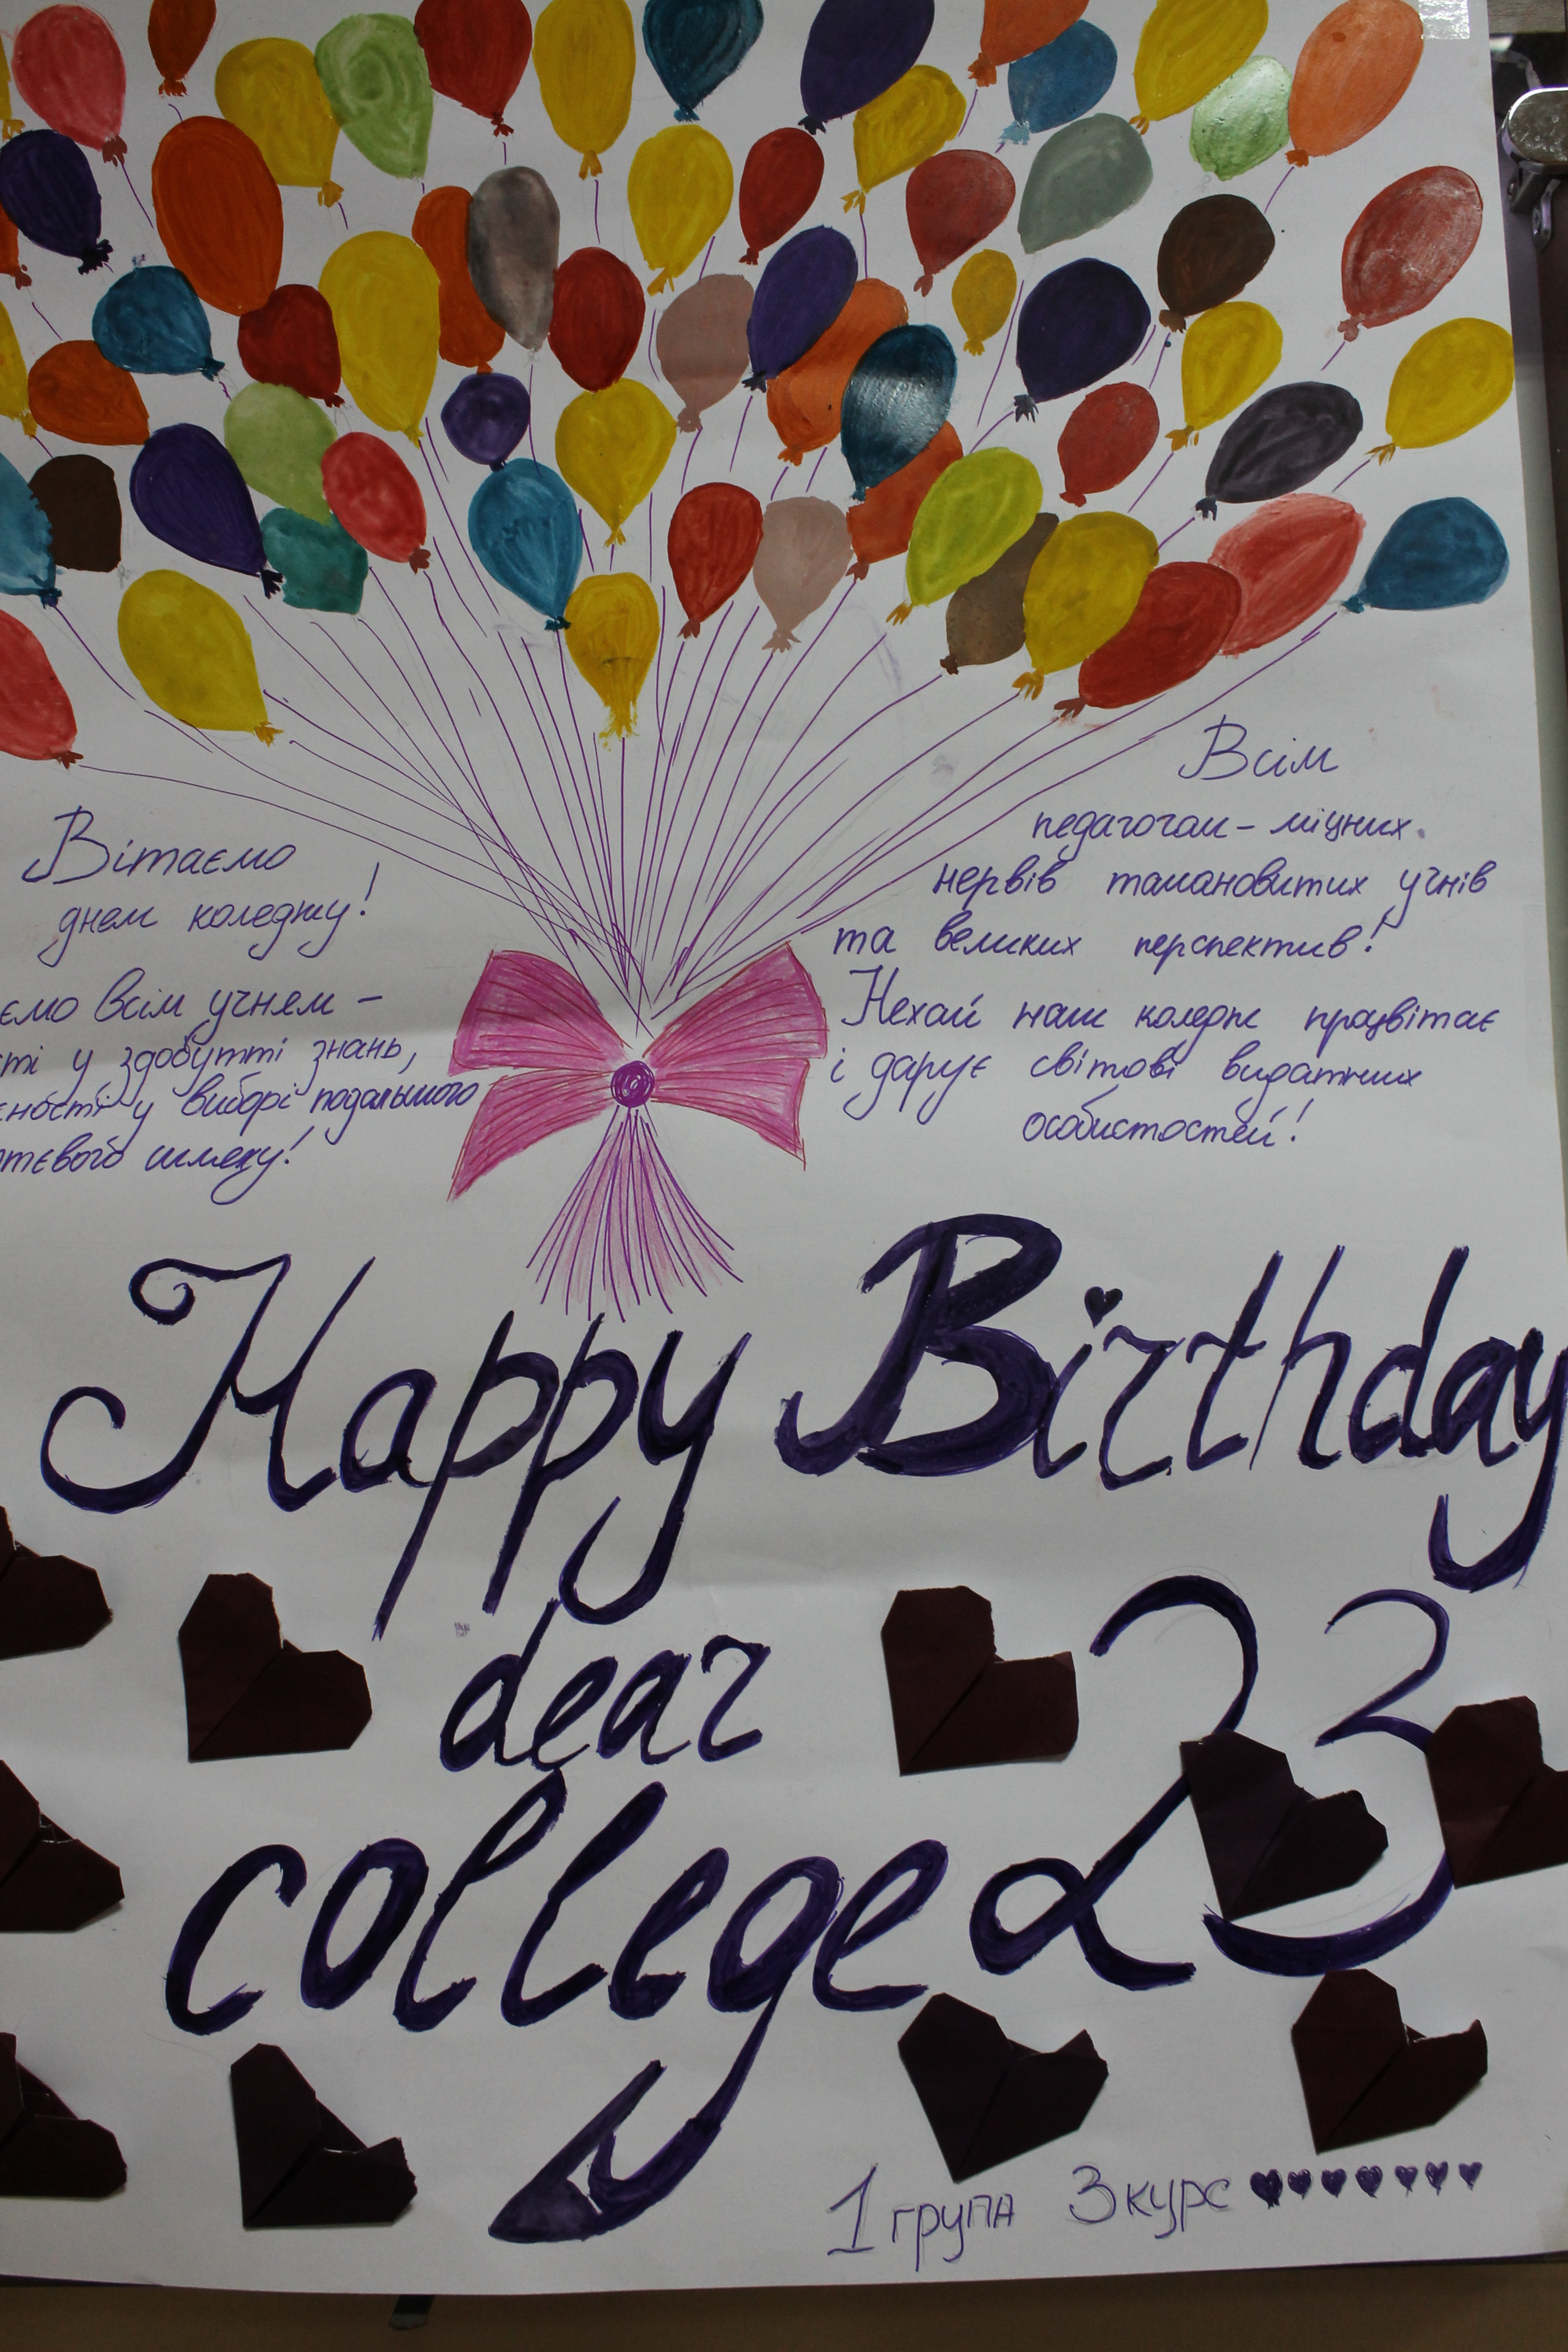 Вітаємо
днем коледжу!
ємо всім учнем –
сті у здобутті знань,
ності у виборі подальшого
ттєвого шляху!
Всім
педагогам – міцних
нервів талановитих учнів
та великих перспектив!
Нехай наш коледж процвітає
і дарує світові видатних
особистостей!
Happy Birthday
dear
college 23
1 група 3 курс